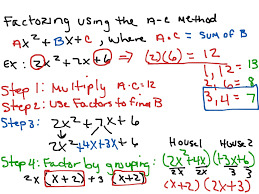 Factorizing using the A-C Method
Ax² + Bx + C, where A·C = sum of B
Ex: 2x² + 7x + 6 ⇒ (2)(6) = 12
1, 12 = 13
2, 6 = 8
3, 4 = 7
Step 1: Multiply A·C = 12
Step 2: Use Factors to find B
Step 3: 2x² + 7x + 6
2x² + 4x + 3x + 6
House 1 House 2
(2x² + 4x)(+3x + 6)
Step 4: Factor by grouping:
2x (x+2) + 3 (x+2)
(x+2)(2x+3)